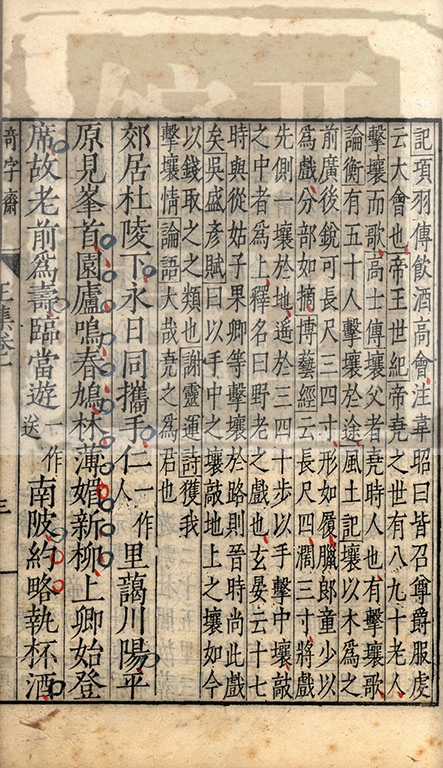 記項羽傳飲酒高會注韋昭曰皆召尊爵服虔
云大會也帝王世紀帝堯之世有八九十老人
擊壤而歌高士傳壤父者堯時人也有擊壤歌
論衡有五十人擊壤於途風土記壤以木爲之
前廣後銳可長尺三四寸形如履臘節童少以
爲戲分部如摘博藝經云長尺四濶三寸將戲
先側一壤於地遙於三四十步以手擊中壤敲
之中者爲上釋名曰野老之戲也玄晏云十七
時與從姑子果卿等擊壤於路則晉時尚此戲
矣吳盛彥賦曰以手中之壤敲地上之壤如今
以錢取之之類也謝靈運詩獲我
擊壤情論語大哉堯之爲君也
郊居杜陵下永日同攜手仁一作人里藹川陽平
原見峯首園廬鳴春鳩林薄媚新柳上卿始登
席故老前爲壽臨當遊一作送南陂約略執杯酒
奇字齋 王集卷一